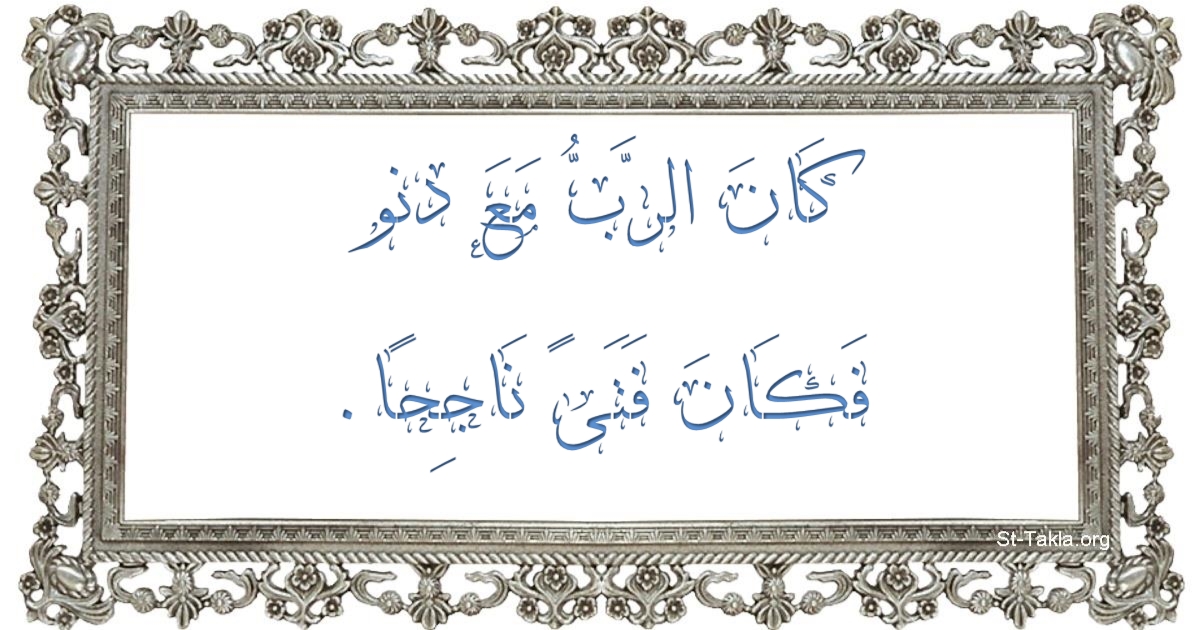 كَانَ الرَّبُّ مَعَ دنو
فَكَانَ فَتَىً نَاجِحًا .
St-Takla.org